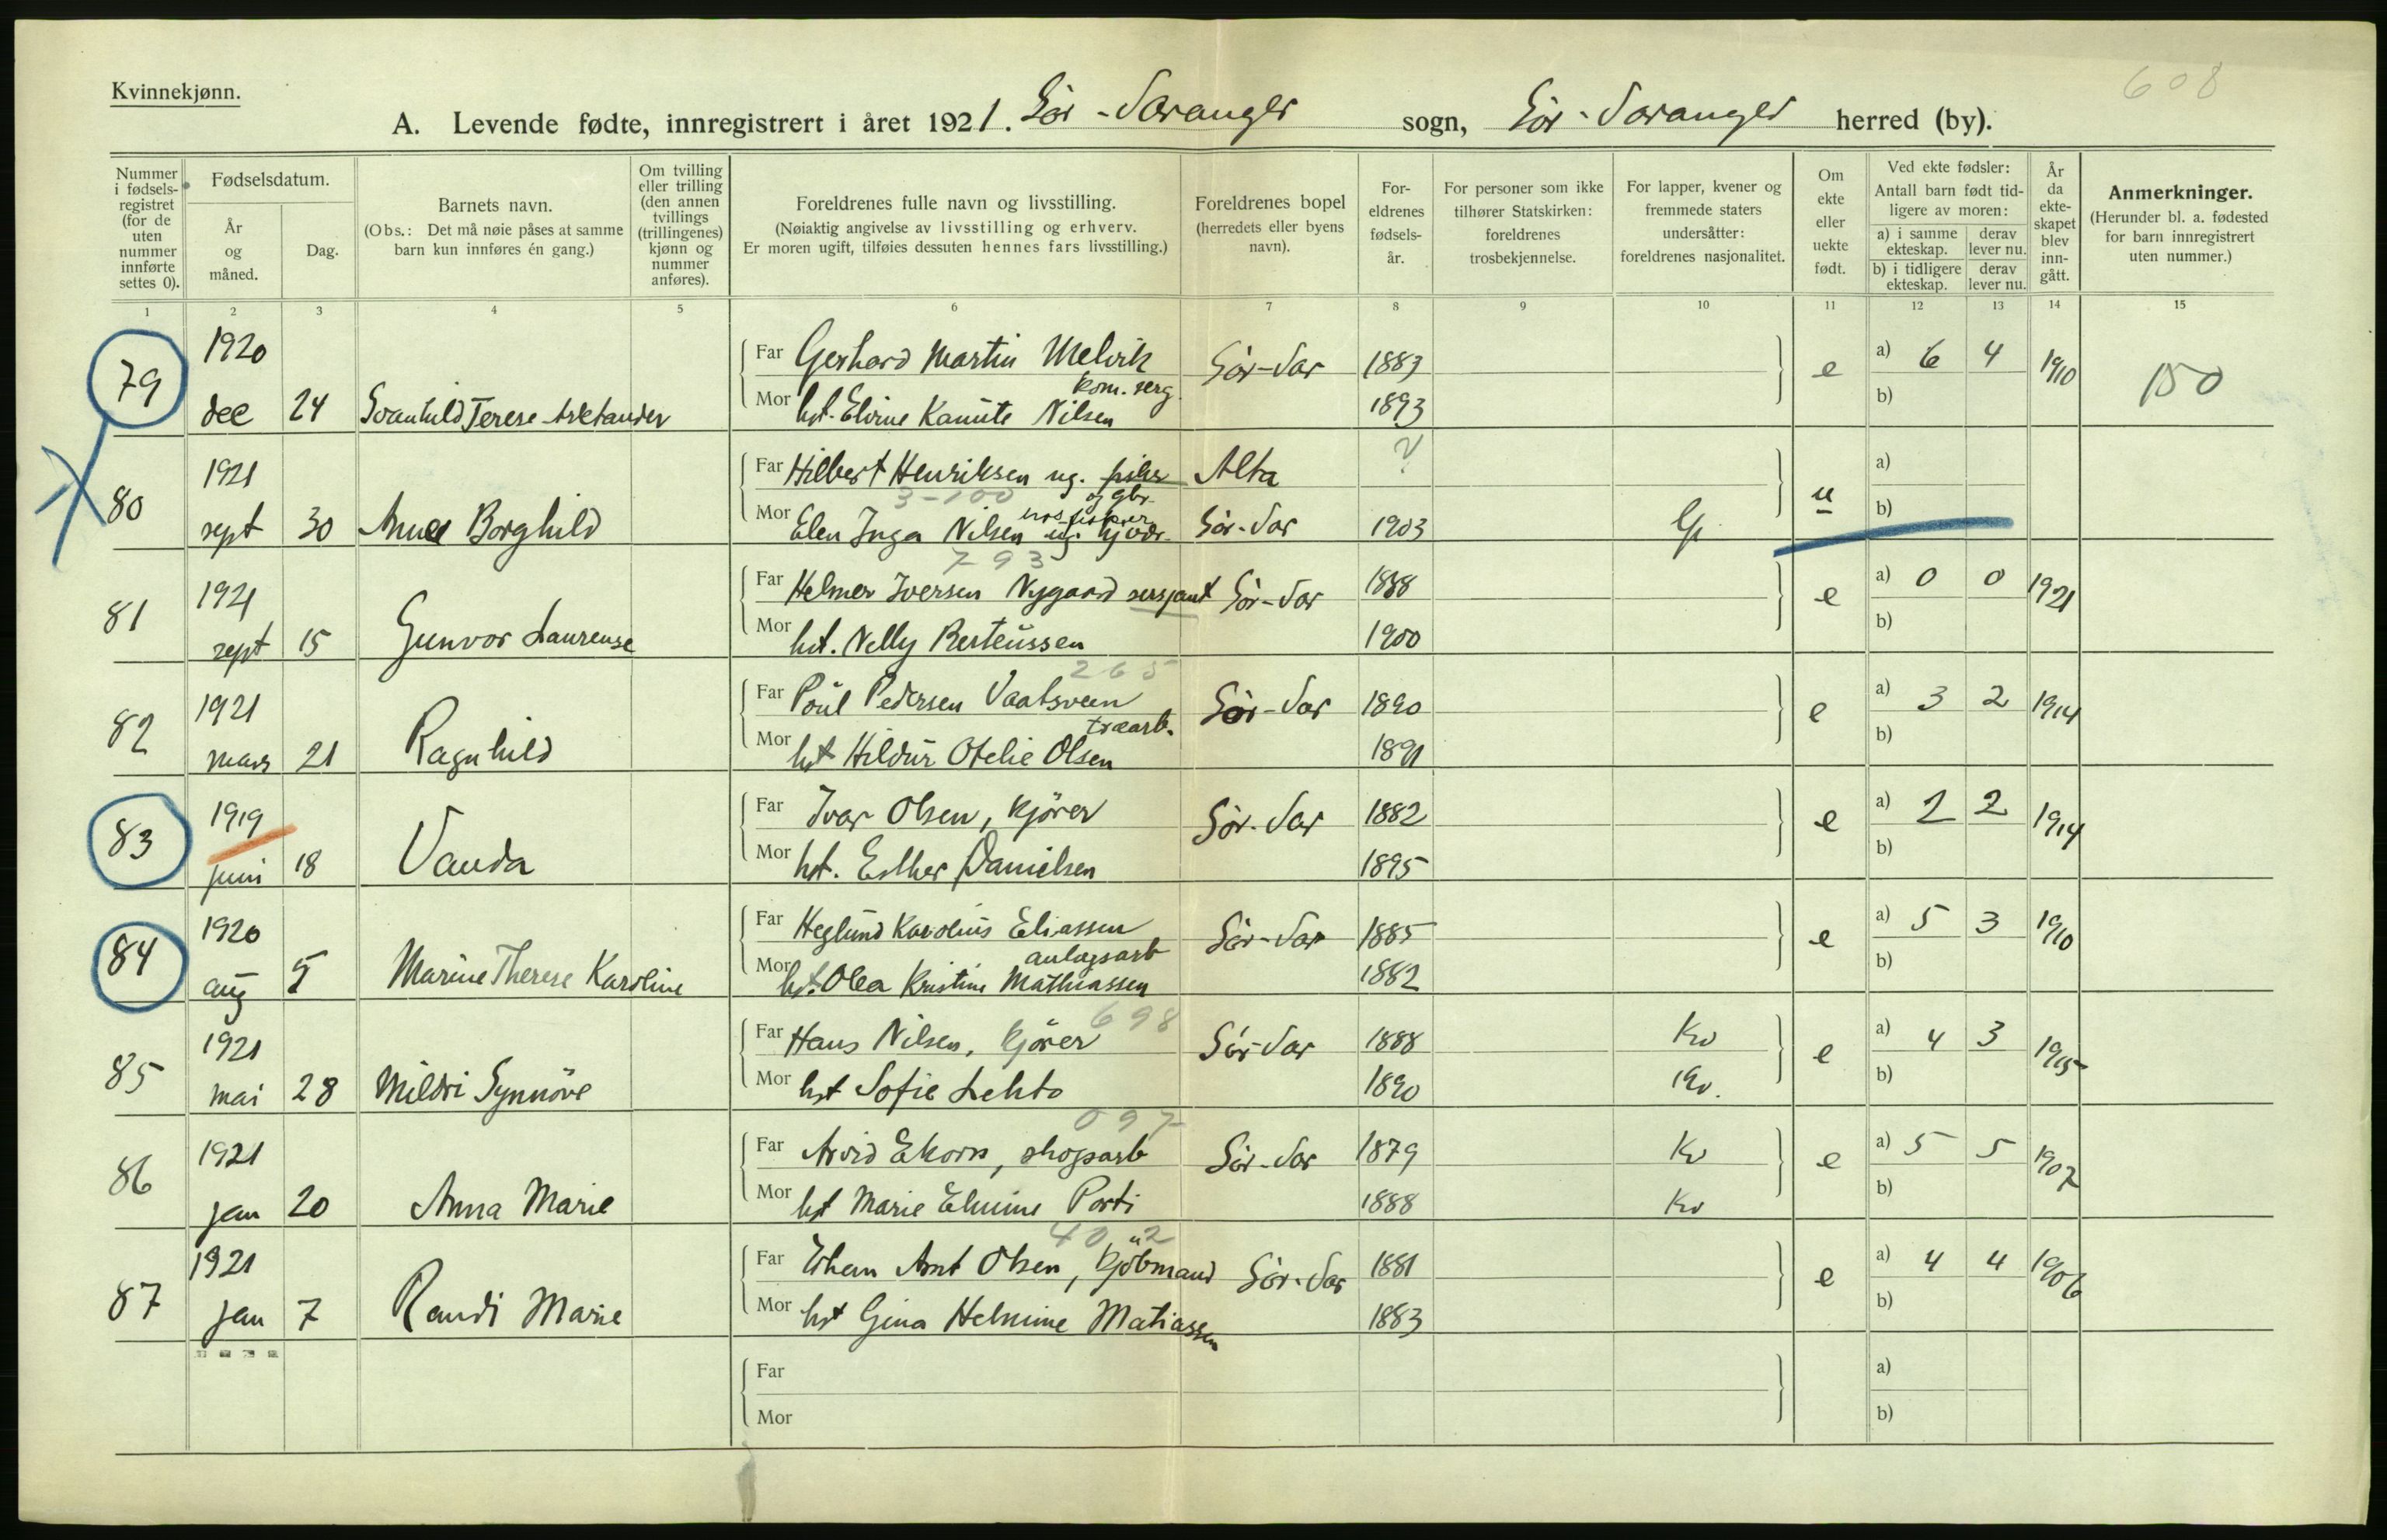 Kvinnekjønn.
608
A. Levende fødte, innregistrert i året 1921. Sør-Varanger sogn, Sør-Varanger herred (by).
Nummer i fødsels-registret (for de uten nummer innførte settes 0).
Fødselsdatum.
År og måned.
Dag.
Barnets navn.
(Obs.: Det må nøie påses at samme barn kun innføres én gang.)
Om tvilling eller trilling (den annen tvillings (trillingenes) kjønn og nummer anføres).
Foreldrenes fulle navn og livsstilling.
(Nøiaktig angivelse av livsstilling og erhverv.
Er moren ugift, tilføies dessuten hennes fars livsstilling.)
Foreldrenes bopel (herredets eller byens navn).
For-eldrenes fødsels-år.
For personer som ikke tilhører Statskirken: foreldrenes trosbekjennelse.
For lapper, kvener og fremmede staters undersåtter: foreldrenes nasjonalitet.
Om ekte eller uekte født.
Ved ekte fødsler:
Antall barn født tid-ligere av moren:
a) i samme ekteskap. derav lever nu.
b) i tidligere ekteskap. derav lever nu.
År da ekte-skapet blev inn-gått.
Anmerkninger.
(Herunder bl. a. fødested for barn innregistrert uten nummer.)
1 2 3 4 5 6 7 8 9 10 11 12 13 14 15
79 1920 dec 24 Svanhild Terese
Far Gerhard Martin Melvik kom. serg. Sør-Var 1883 e a) 6 4 1910 150
Mor hst. Elvine Kamite Nilsen 1893 b)
80 1921 sept 30 Anna Borghild
Far Hilbert Henriksen ug. fisker og gbr. Alta ? u a)
3-100
Mor Elen Inga Nilsen ug. Sør-Var 1903 Lp b)
793
81 1921 sept 15 Gunvor Laurense
Far Helmer Iversen Nygaard sersjant Sør-Var 1888 e a) 0 0 1921
Mor hst. Nelly Berteussen 1900 b)
265
82 1921 mars 21 Ragnhild
Far Poul Pedersen Vaatsveen træarb. Sør-Var 1890 e a) 3 2 1914
Mor hst Hildur Otelie Olsen 1891 b)
83 1919 juni 18 Vanda
Far Ivar Olsen, kjører Sør-Var 1882 e a) 2 2 1914
Mor hst. Esther Danielsen 1895 b)
84 1920 aug 5 Marine Therese Karoline
Far Heglund Karolius Eliassen anlagsarb Sør-Var 1885 e a) 5 3 1910
Mor hst. Olea Kristine Mathiassen 1882 b)
698
85 1921 mai 28 Mildri Synnöve
Far Hans Nilsen, kjører Sør-Var 1888 Kv e a) 4 3 1915
Mor hst Sofie Lehto 1890 Kv. b)
097
86 1921 jan 20 Anna Marie
Far Arvid Ekorn, skogsarb Sør-Var 1879 Kv e a) 5 5 1907
Mor hst Marie Elmine Porti 1888 Kv b)
402
87 1921 jan 7 Randi Marie
Far Johan Arnt Olsen, kjöbmand Sør-Var 1881 e a) 4 4 1906
Mor hst Gina Helmine Matiassen 1883 b)
Far a)
Mor b)